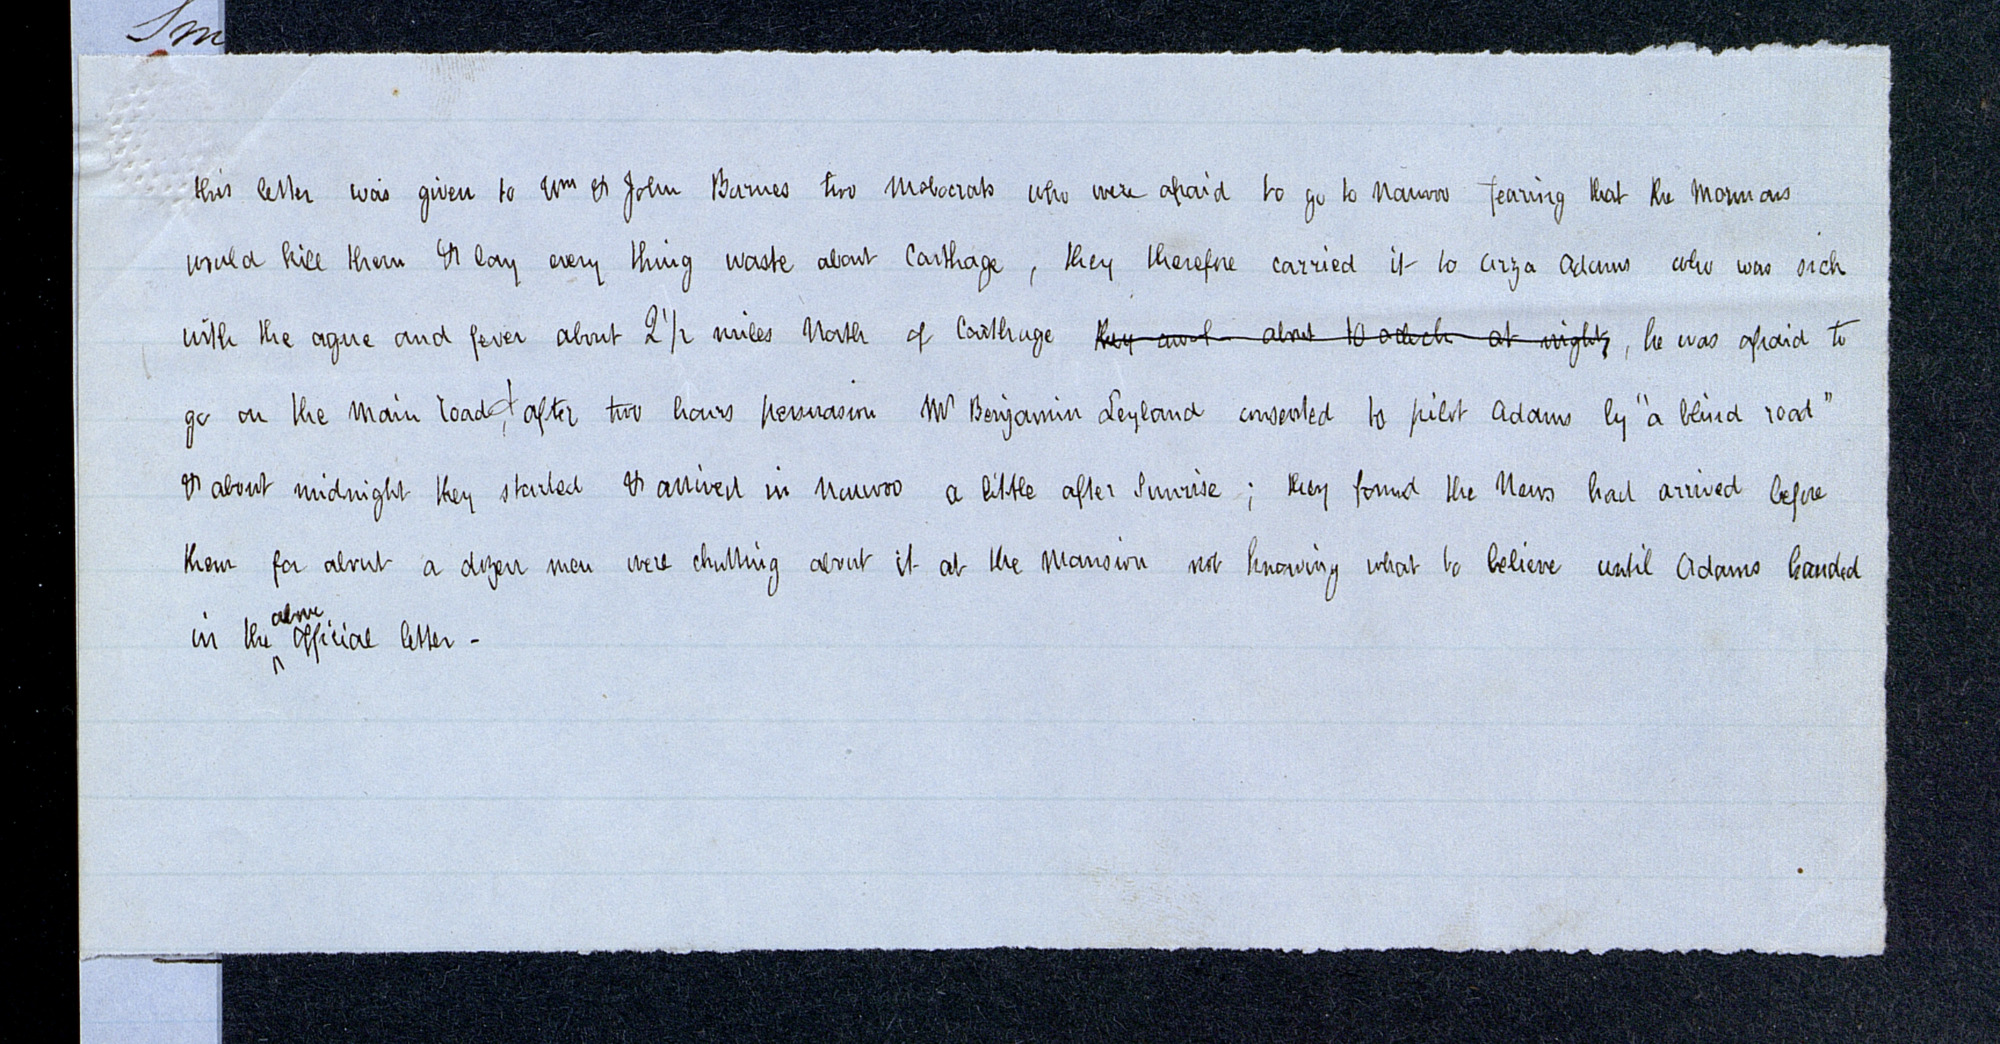 Sm
this letter was given to Wm & John Barnes two Mobocrats who were afraid to go to Nauvoo fearing that the Mormons
would kill them & lay every thing waste about Carthage, they therefore carried it to Arza Adams who was sick
with the ague and fever about 2 1/2 miles North of Carthage they arrived about 10 oclock at night, he was afraid to
go on the main road, & after two hours persuasion Mr Benjamin Leyland consented to pilot Adams by "a blind road"
& about midnight they started & arrived in Nauvoo a little after Sunrise; they found the News had arrived before
them for about a dozen men were chatting about it at the Mansion not knowing what to believe until Adams handed
above
in the official letter -